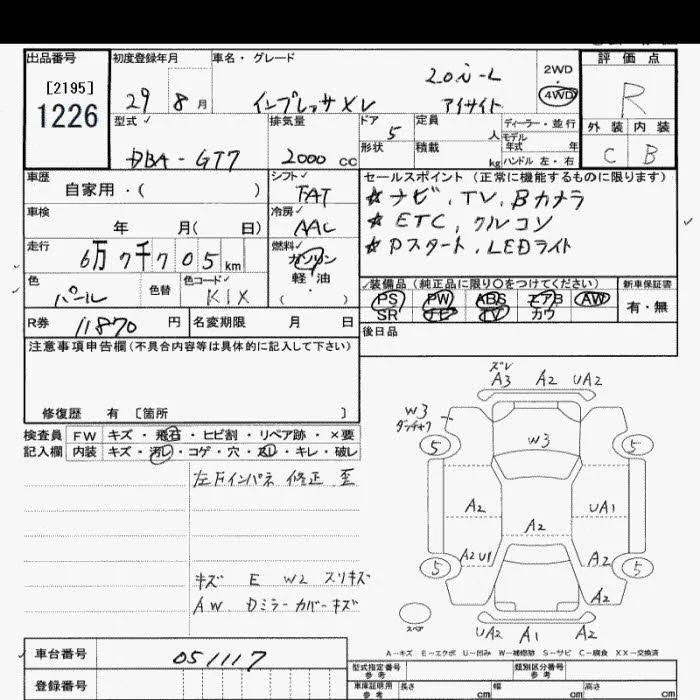 出品番号 初度登録年月 車名・グレード 評価点
[2195] 2.0i-L 2WD
1226 29 8月 インプレッサXV アイサイト 4WD R
型式 排気量 ドア 定員 ディーラー・並行 外装 内装
DBA-GT7 2000cc 5 人 モデル年式 年 C B
形状 積載 kg ハンドル 左・右
車歴 シフト セールスポイント(正常に機能するものに限ります)
自家用・( ) FAT ☆ナビ、TV、Bカメラ
車検 冷房
年 月(日) AAC ☆ETC、クルコン
走行 燃料 ☆Pスタート、LEDライト
6万7千705km ガソリン
色 色替 色コード 軽油 装備品(純正品に限り○をつけてください) 新車保証書
パール K1X ( ・ ) PS PW ABS エアB AW 有・無
SR ナビ TV カワ
R券 11870円 名変期限 月 日 後日品
注意事項申告欄(不具合内容等は具体的に記入して下さい)
修復歴 有 〔箇所 〕
検査員 FW キズ・飛石・ヒビ割・リペア跡・×要
記入欄 内装 キズ・汚レ・コゲ・穴・・キレ・破レ
左Fインパネ 修正 歪
キズ E W2 スリキズ
AW、Dミラーカバーキズ
ズレ
A3 A2 UA2
W3
5 W3 5
A2 UA1
A2
A2U1 A2
5 5
A2
スペア
UA2 A1 A2
A-キズ E-エクボ U-凹み W-補修跡 S-サビ C-腐食 XX-交換済
車台番号 051117 型式指定番号 参考 類別区分番号 参考
登録番号 車庫証明用 参考 長さ cm 幅 cm 高さ cm